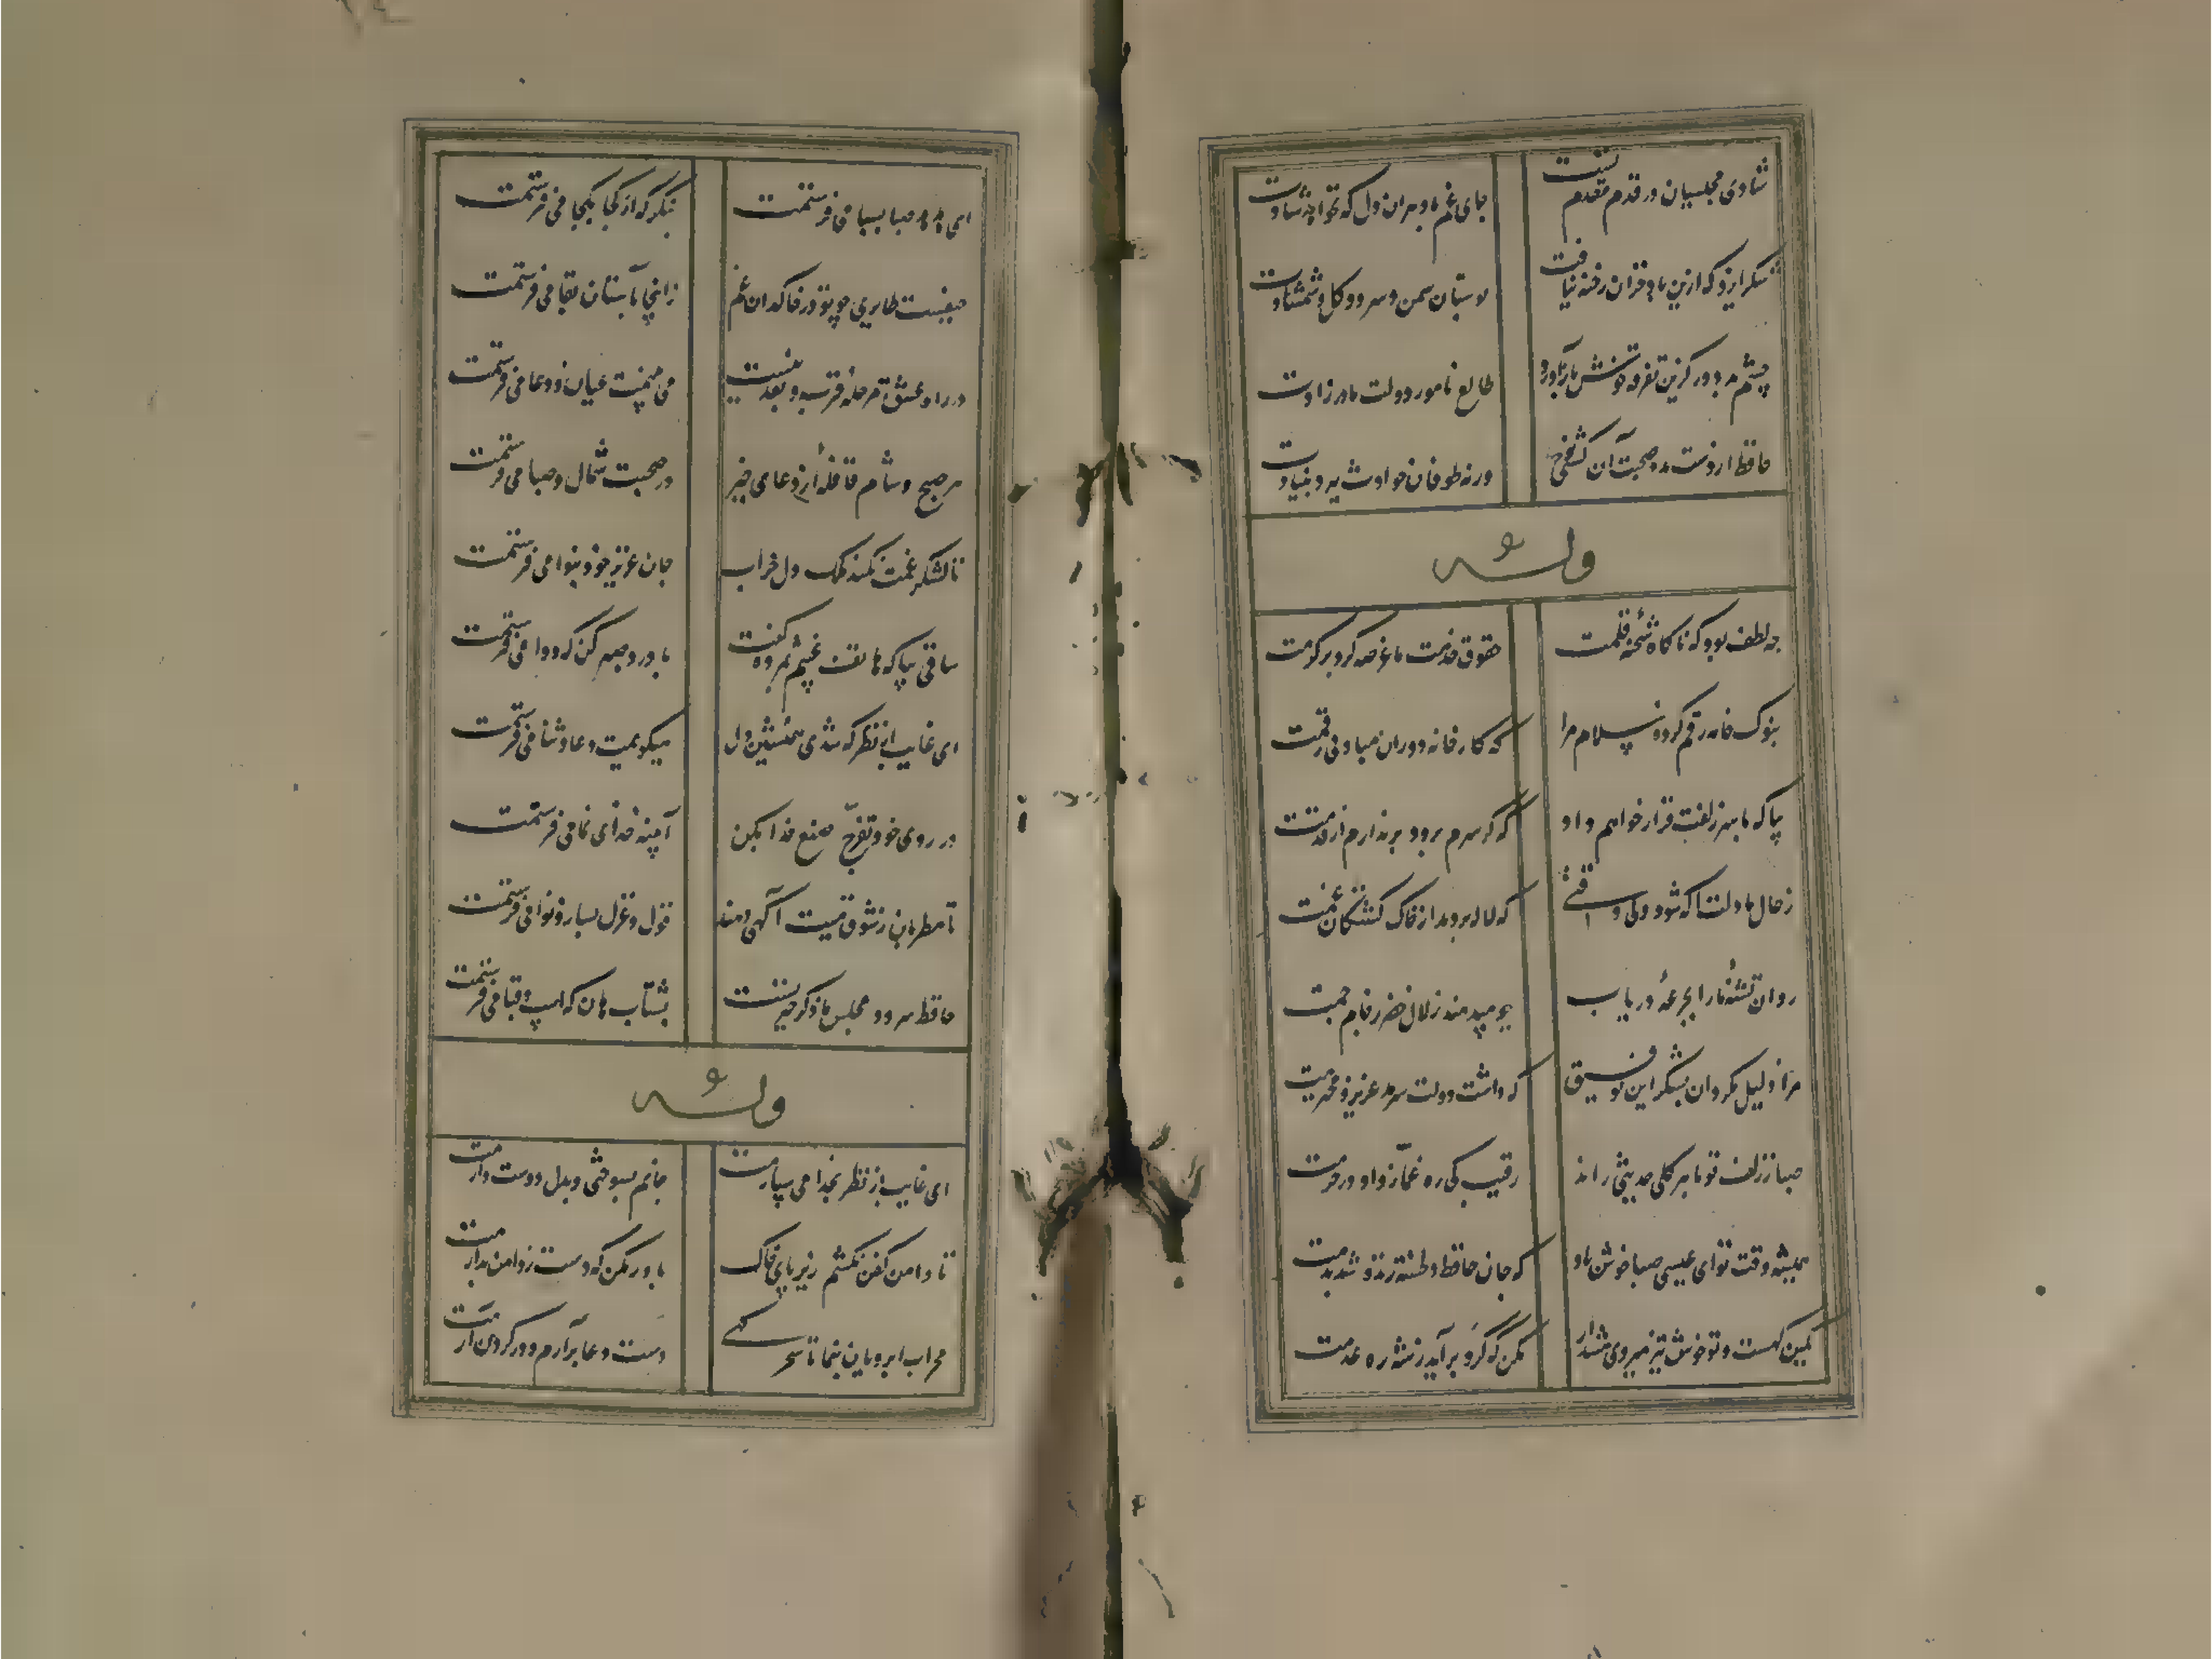 شادی مجلسیان در قدم مقدم تست
جای غم باد بر آن دل که نخواهد شادت
شکر ایزد که ازین باد خزان رخنه نیافت
بوستان سمن و سرو و گل و شمشادت
چشم بد دور کزین تفرقه خوش بازآورد
طالع نامور و دولت مادرزادت
حافظ از دست مده صحبت آن کشتی
ورنه طوفان حوادث ببرد بنیادت
وله
چه لطف بود که ناگاه رشحه قلمت
حقوق خدمت ما عرضه کرد بر کرمت
بنوک خامه رقم کرده سلام مرا
که کارخانه دوران مباد بی رقمت
بیا که با سر زلفت قرار خواهم داد
که گر سرم برود برندارم از قدمت
ز حال ما دلت آگه شود ولی وقتی
که لاله بردمد از خاک کشتگان غمت
روان تشنه ما را بجرعه دریاب
چو میدهند زلال خضر ز جام جمت
مرا ذلیل مگردان بشکر این توفیق
که داشت دولت سرمد عزیز و محترمت
صبا ز زلف تو با هر گلی حدیثی راند
رقیب کی ره غماز داد در حرمت
همیشه وقت تو ای عیسی صبا خوش باد
که جان حافظ دلخسته زنده شد بدمت
کمین گهست و تو خوش تیز میروی هشدار
مکن که گرد برآید ز شه ره عدمت
ای هدهد صبا بسبا می فرستمت
بنگر که از کجا بکجا می فرستمت
حیفست طایری چو تو در خاکدان غم
زانجا بآستان بقا می فرستمت
در راه عشق مرحله قرب و بعد نیست
می بینمت عیان و دعا می فرستمت
هر صبح و شام قافله از دعای خیر
در صحبت شمال و صبا می فرستمت
تا لشکر غمت نکند ملک دل خراب
جان عزیز خود بنوا می فرستمت
ساقی بیا که هاتف غیبم بمژده گفت
با درد صبر کن که دوا می فرستمت
ای غایب از نظر که شدی همنشین دل
میگویمت دعا و ثنا می فرستمت
در روی خود تفرج صنع خدا بکن
آیینه خدای نما می فرستمت
تا مطربان ز شوق منت آگهی دهند
قول و غزل بساز و نوا می فرستمت
حافظ سرود مجلس ما ذکر خیر تست
بشتاب هان که اسب و قبا می فرستمت
وله
ای غایب از نظر بخدا می سپارمت
جانم بسوختی و بدل دوست دارمت
تا دامن کفن نکشم زیر پای خاک
باور مکن که دست ز دامن بدارمت
محراب ابرویان بنما تا سحرگهی
دست دعا برآرم و در گردن آرمت